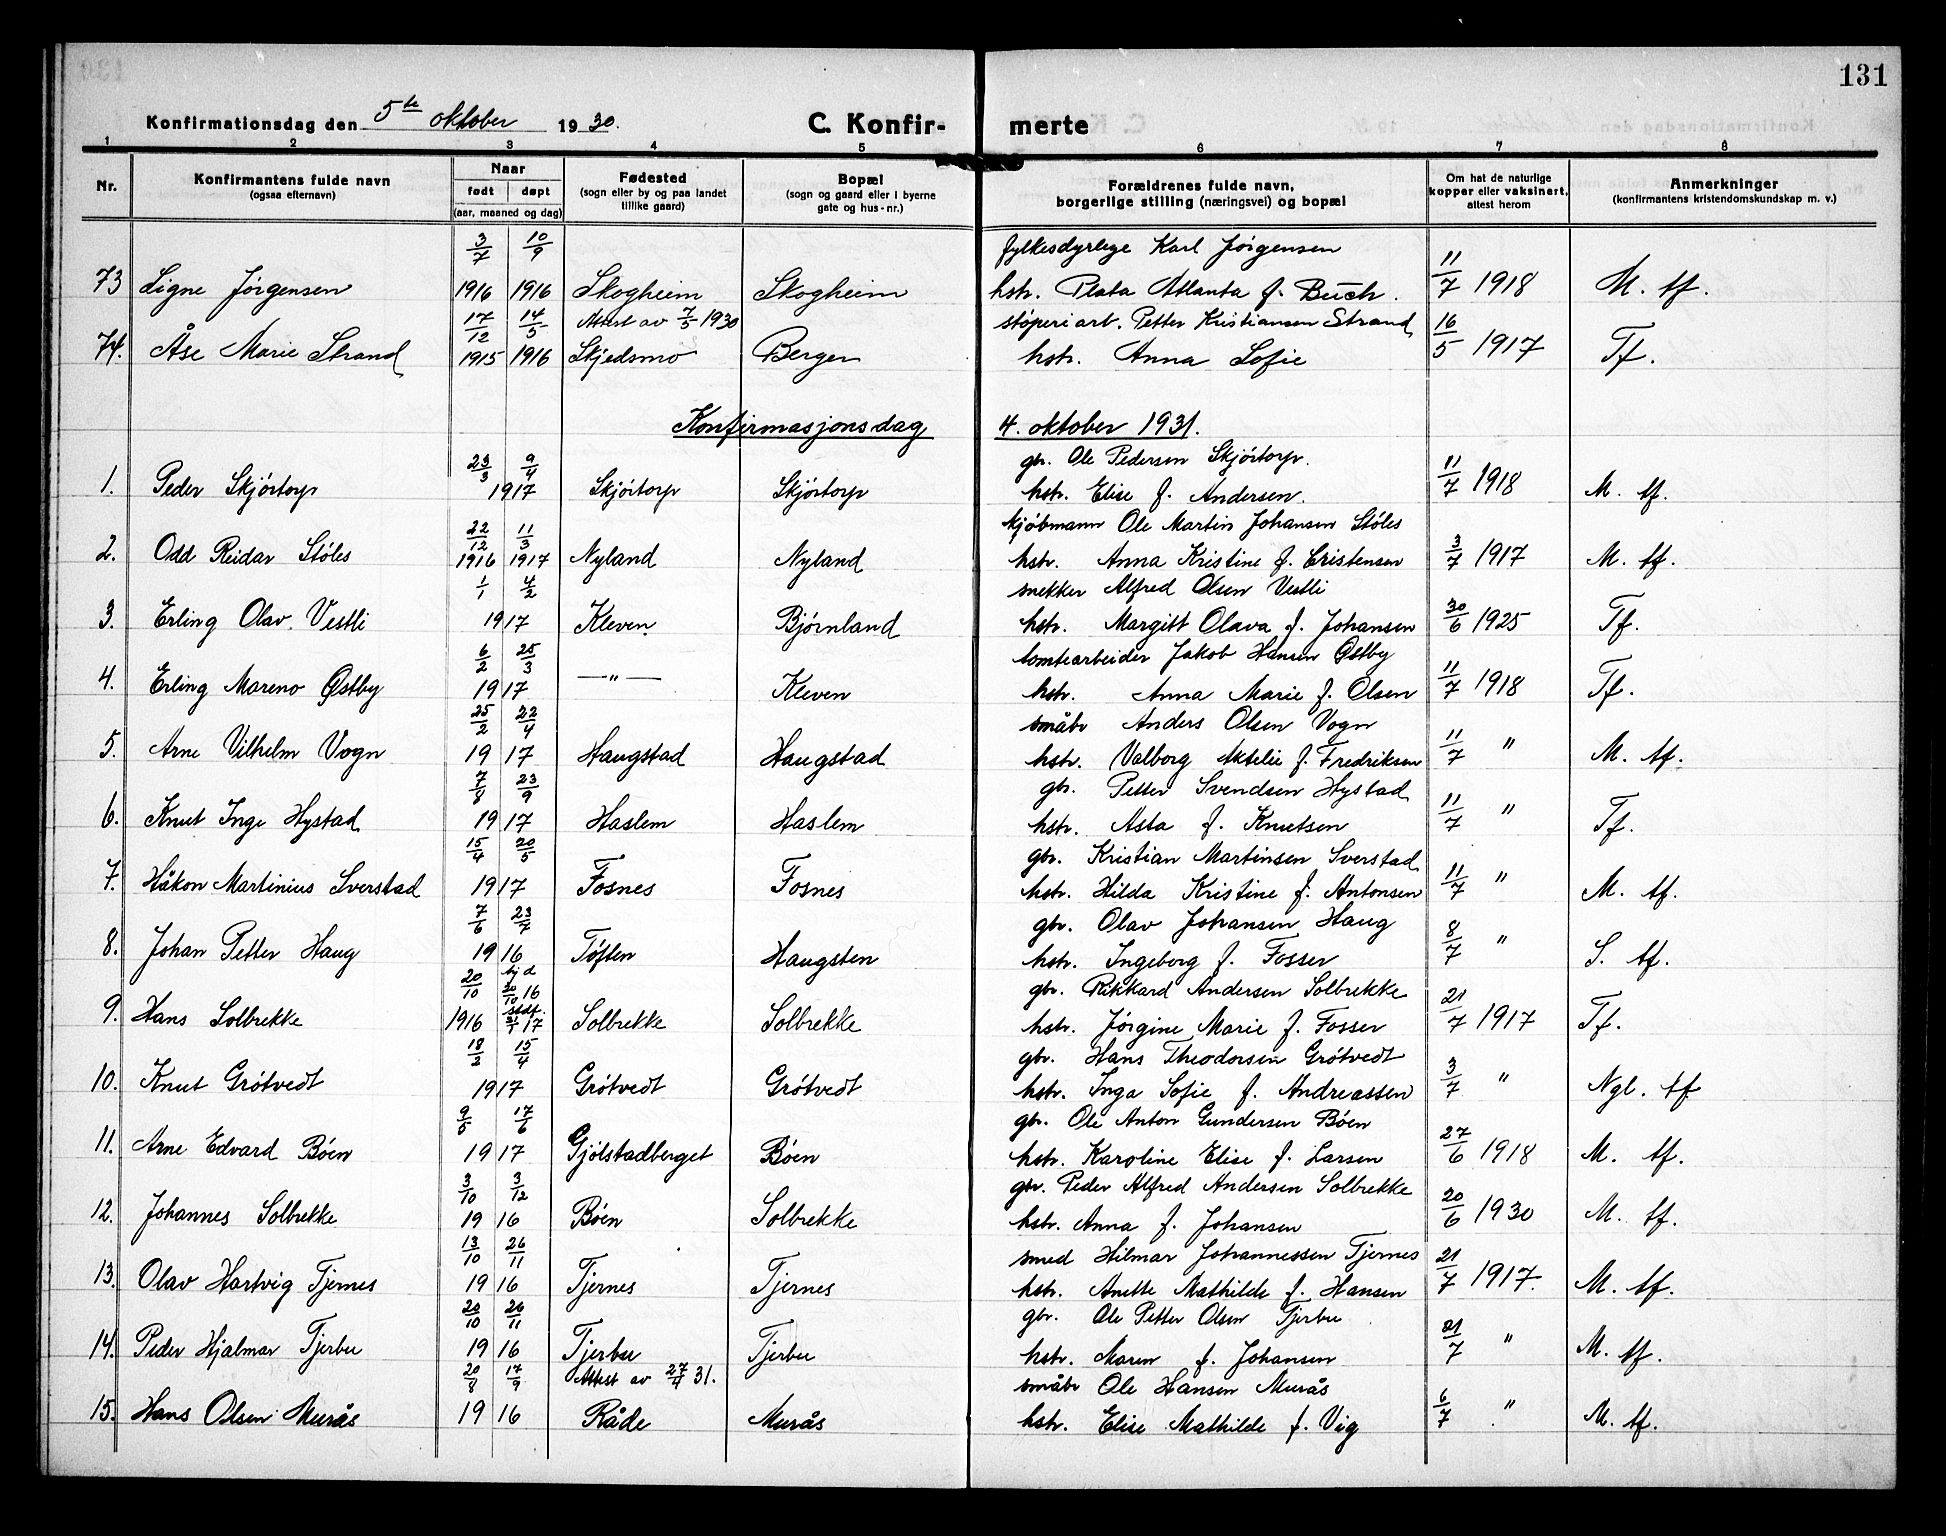 131
Konfirmationsdag den 5te oktober 1930. C. Konfirmerte
1 2 3 4 5 6 7 8
Nr. Konfirmantens fulde navn (ogsaa efternavn) Naar født døpt (aar, maaned og dag) Fødested (sogn eller by og paa landet tillike gaard) Bopæl (sogn og gaard eller i byerne gate og hus-nr.) Forældrenes fulde navn, borgerlige stilling (næringsvei) og bopæl Om hat de naturlige kopper eller vaksinert, attest herom Anmerkninger (konfirmantens kristendomskundskap m. v.)
3/7 10/9 fylkesdyrlege Karl Jørgensen
73 Signe Jørgensen 1916 1916 Skogheim Skogheim hstr. Plata Atlanta f. Buch. 11/7 1918 M. tf.
17/12 14/5 Attest av 7/5 1930 støperiarb. Petter Kristiansen Strand
74. Åse Marie Strand 1915 1916 Skjedsmo Bergen hstr. Anna Sofie 16/5 1917 Tf.
Konfirmasjonsdag 4. oktober 1931.
23/3 9/4 gbr. Ole Pedersen Skjørtorp.
1. Peder Skjørtorp 1917 Skjørtorp Skjørtorp hstr. Elise f. Andersen. 11/7 1918 M. tf.
22/12 11/3 kjøbmann Ole Martin Johansen Støles
2. Odd Reidar Støles 1916 1917 Nyland Nyland hstr. Anna Kristine f. Cristensen 3/7 1917 M. tf.
1/1 4/2 snekker Alfred Olsen Vestli
3. Erling Olav. Vestli 1917 Kleven. Bjørnland hstr. Margitt Olava f. Johansen 30/6 1925 Tf.
6/2 25/3 tomtearbeider Jakob Hansen Østby
4. Erling Mareno Østby 1917 —"— Kleven hstr. Anna Marie f. Olsen 11/7 1918 Tf.
25/2 22/4 småbr Anders Olsen Vogn
5. Arne Vilhelm Vogn 1917 Haugstad Haugstad hstr. Valborg Aktelie f. Fredriksen 11/7 " M. tf.
7/8 23/9 gbr. Petter Svendsen Hystad
6. Knut Inge Hystad 1917 Haslem Haslem hstr. Asta f. Knutsen 11/7 " Tf.
15/4 20/5 gbr. Kristian Martinsen Sverstad
7. Håkon Martinius Sverstad 1917 Fosnes Fosnes hstr. Hilda Kristine f. Antonsen 11/7 " M. tf.
7/6 23/7 gbr. Olav Johansen Haug
8. Johan Petter Haug 1916 Tøften Haugsten hstr. Ingeborg f. Fosser 8/7 " S. tf.
20/10 hjd 30/10 16 gbr. Rikkard Andersen Solbrekke
9. Hans Solbrekke 1916 stdf. 17 Solbrekke Solbrekke hstr. Jørgine Marie f. Fosser 21/7 1917 Tf.
18/2 15/4 gbr. Hans Theodorsen Grøtvedt
10. Knut Grøtvedt 1917 Grøtvedt Grøtvedt hstr. Inga Sofie f. Andreassen 3/7 " Ngl. tf
9/5 17/6 gbr. Ole Anton Gundersen Bøen
11. Arne Edvard Bøen 1917 Gjølstadberget Bøen hstr. Karoline Elise f. Larsen 27/6 1918 M. tf.
3/10 3/12 gbr. Peder Alfred Andersen Solbrekke
12. Johannes Solbrekke 1916 Bøen Solbrekke hstr. Anna f. Johansen 20/6 1930 M. tf.
13/10 26/11 smed Hilmar Johannessen Tjernes
13. Olav Hartvig Tjernes 1916 Tjernes Tjernes hstr. Anette Mathilde f. Hansen 21/7 1917. M. tf.
20/10 26/11 gbr. Ole Petter Olsen Tjerbu
14. Peder Hjalmar Tjerbu 1916 Tjerbu Tjerbu hstr. Maren f. Johansen 21/7 " M. tf.
20/8 17/9 Attest av 27/4 31. småbr Ole Hansen Murås
15. Hans Olsen Murås 1916 Råde Murås hstr. Elise Mathilde f. Vig 6/7 " M. tf.